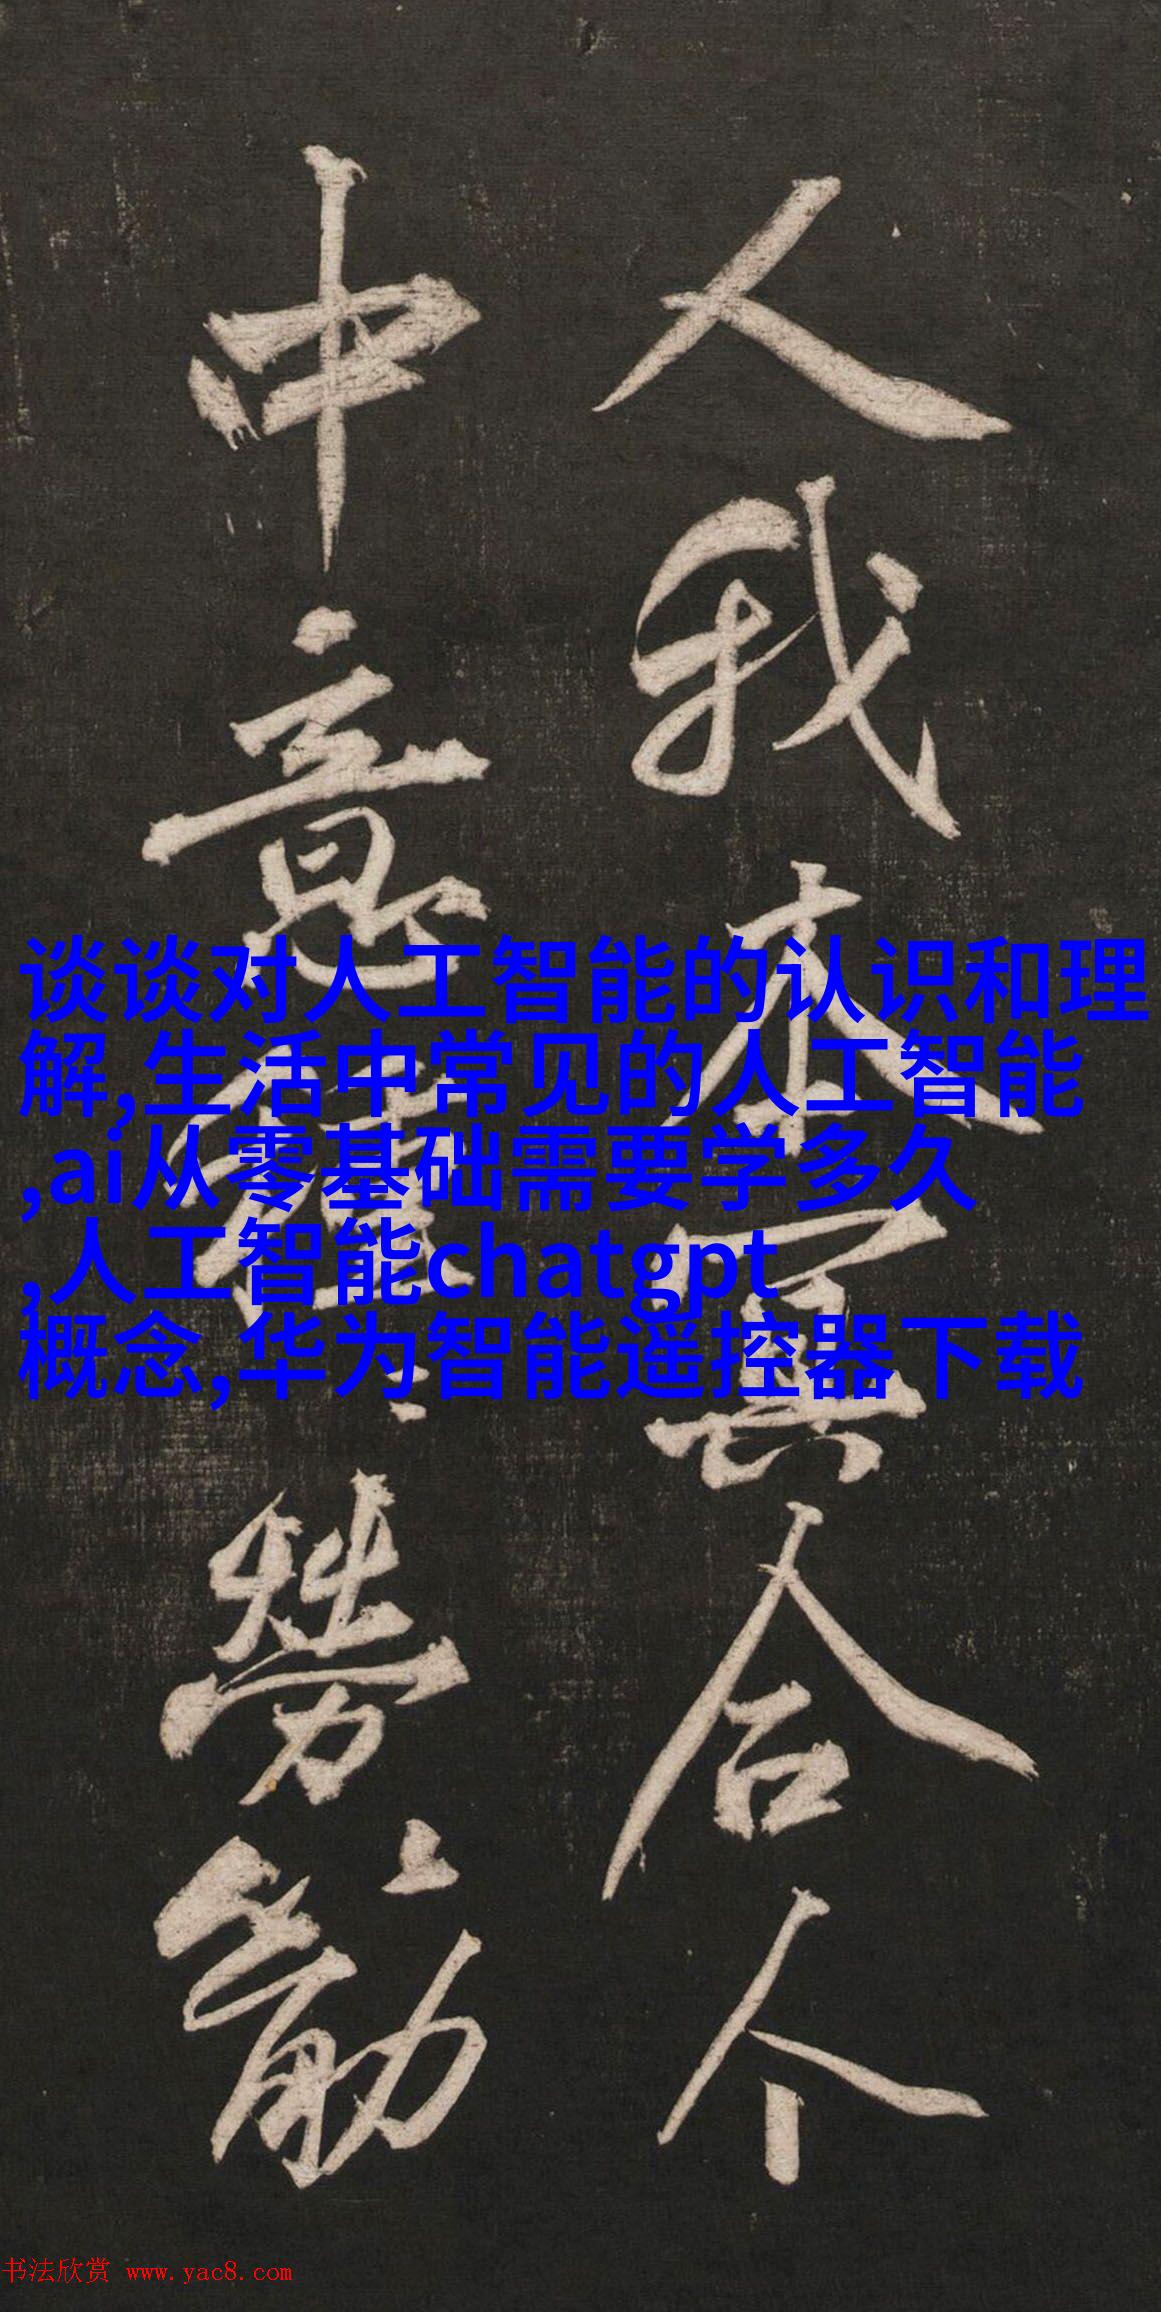 人我本冥合个
中意
劳
勤
谈谈对人工智能的认识和理
解,生活中常见的人工智能
,ai从零基础需要学多久
,人工智能chatgpt
概念,华为智能遥控器下载
书法欣赏 www.yac8.com